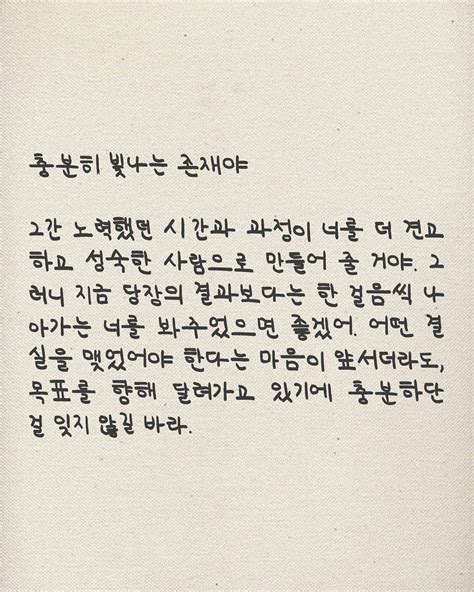 충분히 빛나는 존재야
그간 노력했던 시간과 과정이 너를 더 견고
하고 성숙한 사람으로 만들어 줄 거야. 그
러니 지금 당장의 결과보다는 한 걸음씩 나
아가는 너를 봐주었으면 좋겠어. 어떤 결
실을 맺었어야 한다는 마음이 앞서더라도,
목표를 향해 달려가고 있기에 충분하단
걸 잊지 않길 바라.